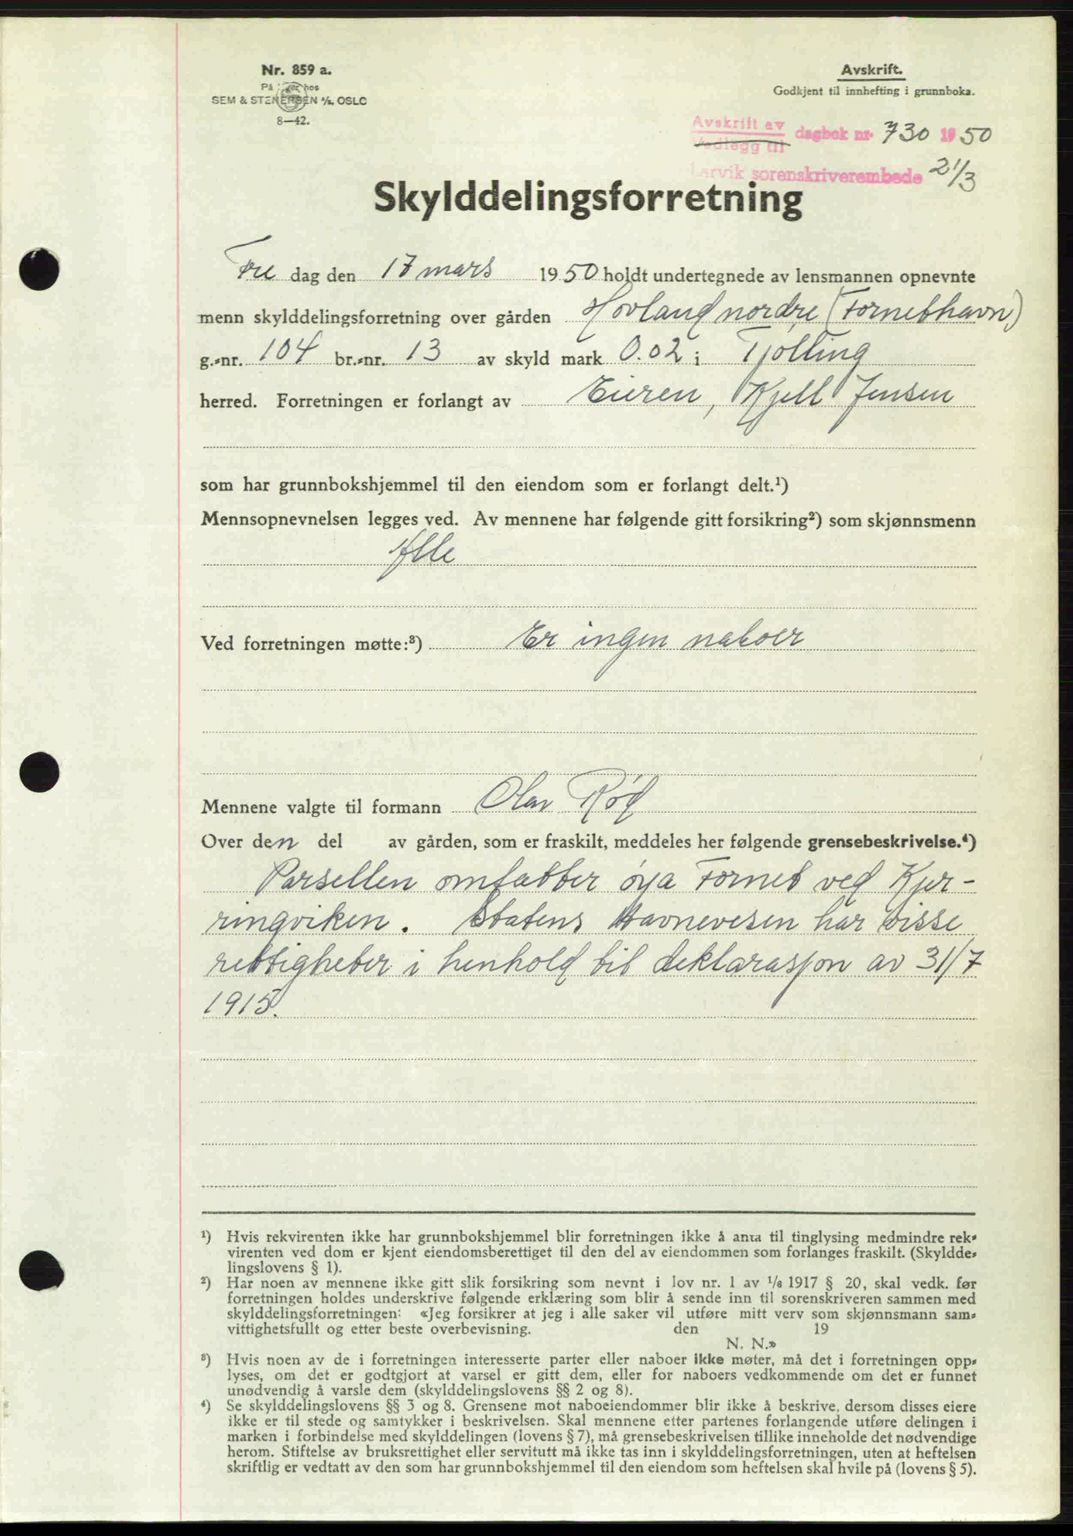 Nr. 859 a.
SEM & STENERSEN A/S, OSLO
8—42.
Avskrift.
Godkjent til innhefting i grunnboka.
Avskrift av
Vedlegg til
dagbok nr. 730 1950
Larvik sorenskriverembede 21/3
Skylddelingsforretning
Fre dag den 17 mars 1950 holdt undertegnede av lensmannen opnevnte
menn skylddelingsforretning over gården Hovland nordre (Fornebhavn)
g.-nr. 104 br.-nr. 13 av skyld mark 0.02 i Tjølling
herred. Forretningen er forlangt av Eieren, Kjell Jensen
som har grunnbokshjemmel til den eiendom som er forlangt delt.¹)
Mennsopnevnelsen legges ved. Av mennene har følgende gitt forsikring²) som skjønnsmenn
Alle
Ved forretningen møtte:³) Er ingen naboer
Mennene valgte til formann Olav Rød
Over den del av gården, som er fraskilt, meddeles her følgende grensebeskrivelse.⁴)
Parsellen omfatter øya Forneb ved Kjer-
ringviken. Statens Havnevesen har visse
rettigheter i henhold til deklarasjon av 31/7
1915.
¹) Hvis rekvirenten ikke har grunnbokshjemmel blir forretningen ikke å anta til tinglysing medmindre rek-
virenten ved dom er kjent eiendomsberettiget til den del av eiendommen som forlanges fraskilt. (Skyldde-
lingslovens § 1).
²) Har noen av mennene ikke gitt slik forsikring som nevnt i lov nr. 1 av 1/8 1917 § 20, skal vedk. før
forretningen holdes underskrive følgende erklæring som blir å sende inn til sorenskriveren sammen med
skylddelingsforretningen: «Jeg forsikrer at jeg i alle saker vil utføre mitt verv som skjønnsmann sam-
vittighetsfullt og etter beste overbevisning. den 19
N. N.»
³) Hvis noen av de i forretningen interesserte parter eller naboer ikke møter, må det i forretningen opp-
lyses, om det er godtgjort at varsel er gitt dem, eller for naboers vedkommende om det er funnet
unødvendig å varsle dem (skylddelingslovens §§ 2 og 8).
⁴) Se skylddelingslovens §§ 3 og 8. Grensene mot naboeiendommer blir ikke å beskrive, dersom disses eiere
ikke er til stede og samtykker i beskrivelsen. Skal mennene etter partenes forlangende utføre delingen i
marken i forbindelse med skylddelingen (lovens § 7), må grensebeskrivelsen tillike inneholde det nødvendige
herom. Stiftelse av bruksrettighet eller servitutt må ikke tas inn i skylddelingsforretningen, uten at heftelsen
skriftlig er vedtatt av den som har grunnbokshjemmel til den eiendom som heftelsen skal hvile på (lovens § 5).